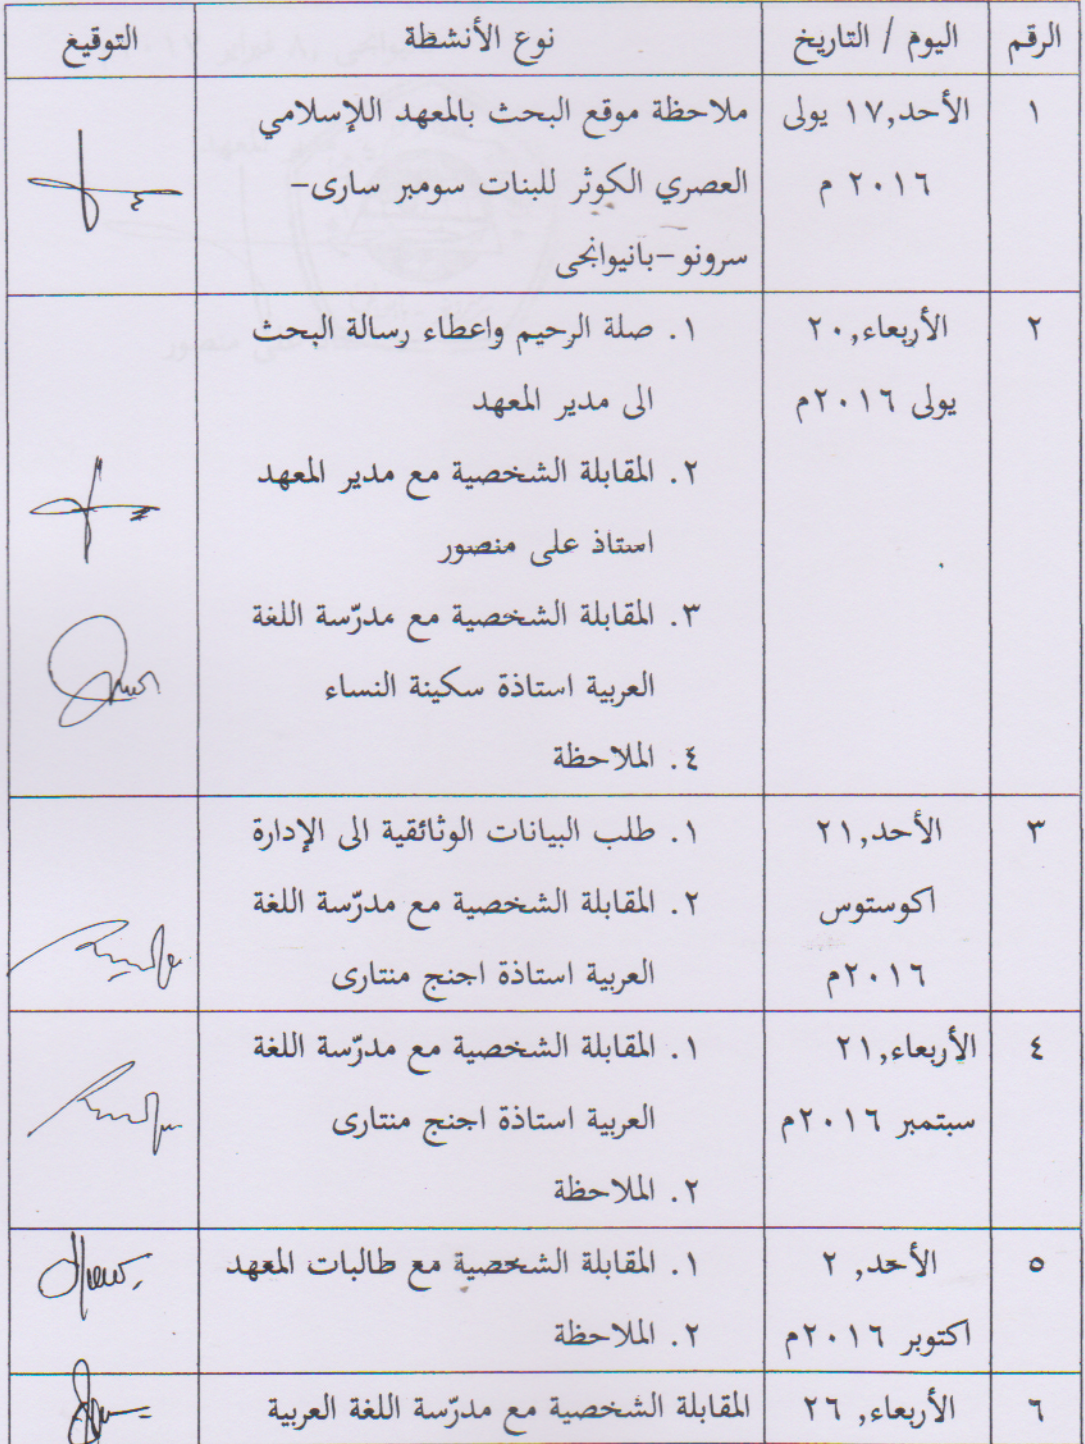 الرقم اليوم / التاريخ نوع الأنشطة التوقيع
١ الأحد,١٧ يولى ملاحظة موقع البحث بالمعهد اللإسلامي
٢٠١٦ م العصري الكوثر للبنات سومبر سارى–
سرونو–بانيوانجى
٢ الأربعاء,٢٠ ١. صلة الرحيم واعطاء رسالة البحث
يولى ٢٠١٦م الى مدير المعهد
٢. المقابلة الشخصية مع مدير المعهد
استاذ على منصور
٣. المقابلة الشخصية مع مدرّسة اللغة
العربية استاذة سكينة النساء
٤. الملاحظة
٣ الأحد,٢١ ١. طلب البيانات الوثائقية الى الإدارة
اكوستوس ٢. المقابلة الشخصية مع مدرّسة اللغة
٢٠١٦م العربية استاذة اجنج منتارى
٤ الأربعاء,٢١ ١. المقابلة الشخصية مع مدرّسة اللغة
سبتمبر ٢٠١٦م العربية استاذة اجنج منتارى
٢. الملاحظة
٥ الأحد, ٢ ١. المقابلة الشخصية مع طالبات المعهد
اكتوبر ٢٠١٦م ٢. الملاحظة
٦ الأربعاء, ٢٦ المقابلة الشخصية مع مدرّسة اللغة العربية